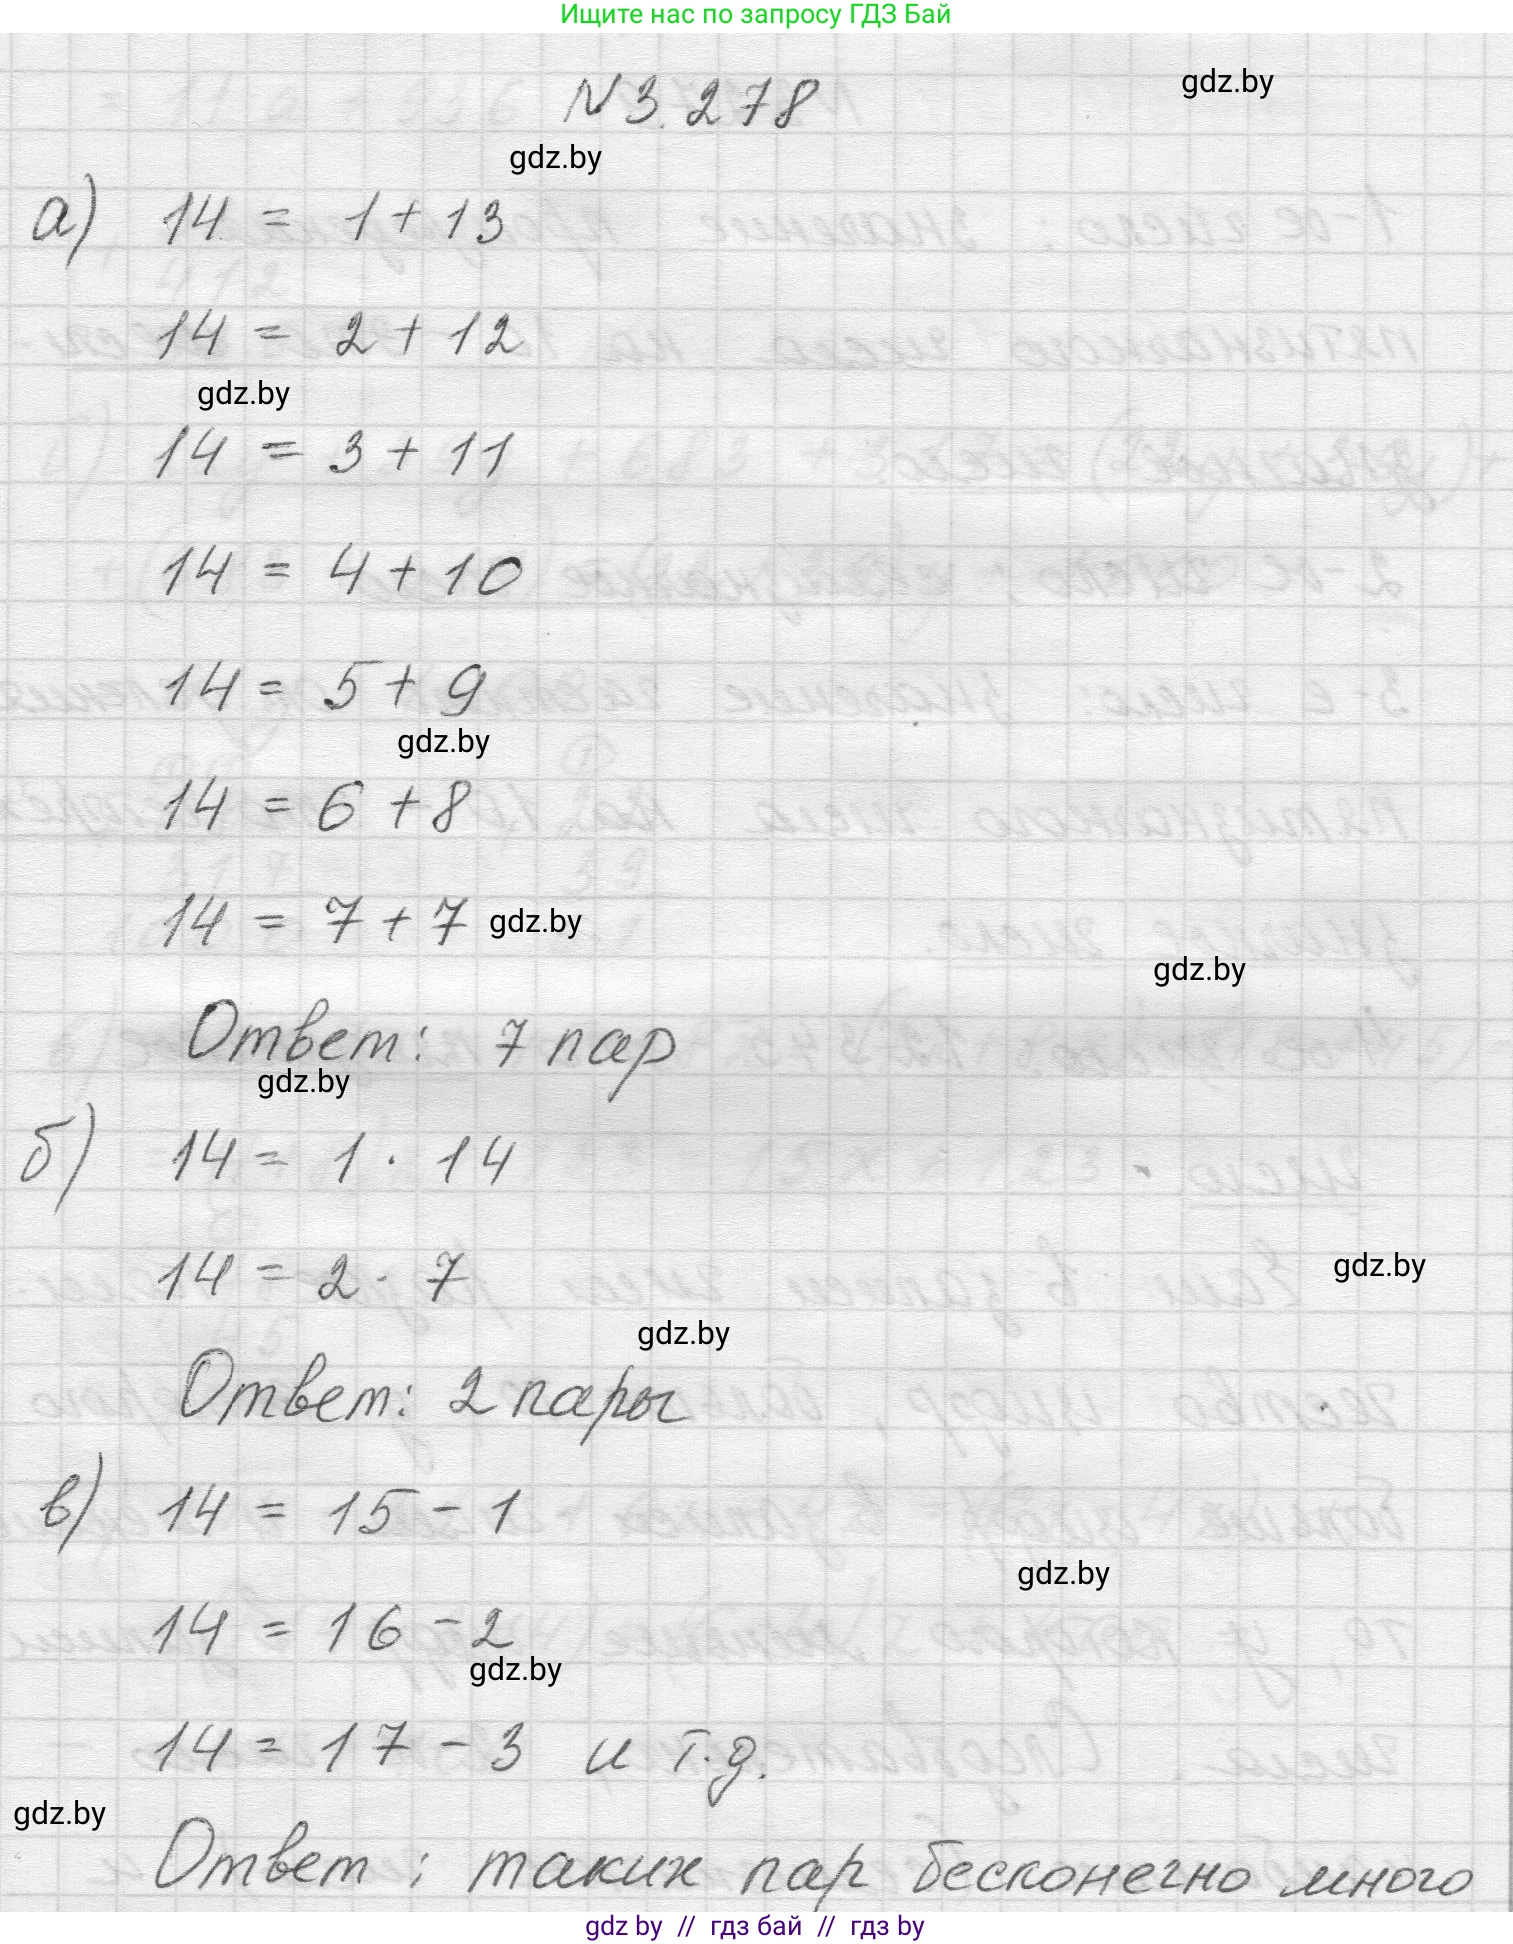 Ищите нас по запросу ГДЗ Бай
gdz.by
N 3.278
gdz.by
а) 14 = 1 + 13
14 = 2 + 12
gdz.by
14 = 3 + 11
14 = 4 + 10
14 = 5 + 9
gdz.by
14 = 6 + 8
14 = 7 + 7 gdz.by
gdz.by
Ответ: 7 пар
gdz.by
б) 14 = 1 · 14
14 = 2 · 7
gdz.by
gdz.by
Ответ: 2 пары
в) 14 = 15 - 1
gdz.by
14 = 16 - 2
gdz.by
14 = 17 - 3 и т.д.
gdz.by
Ответ: таких пар бесконечно много
gdz by // гдз бай // гдз by